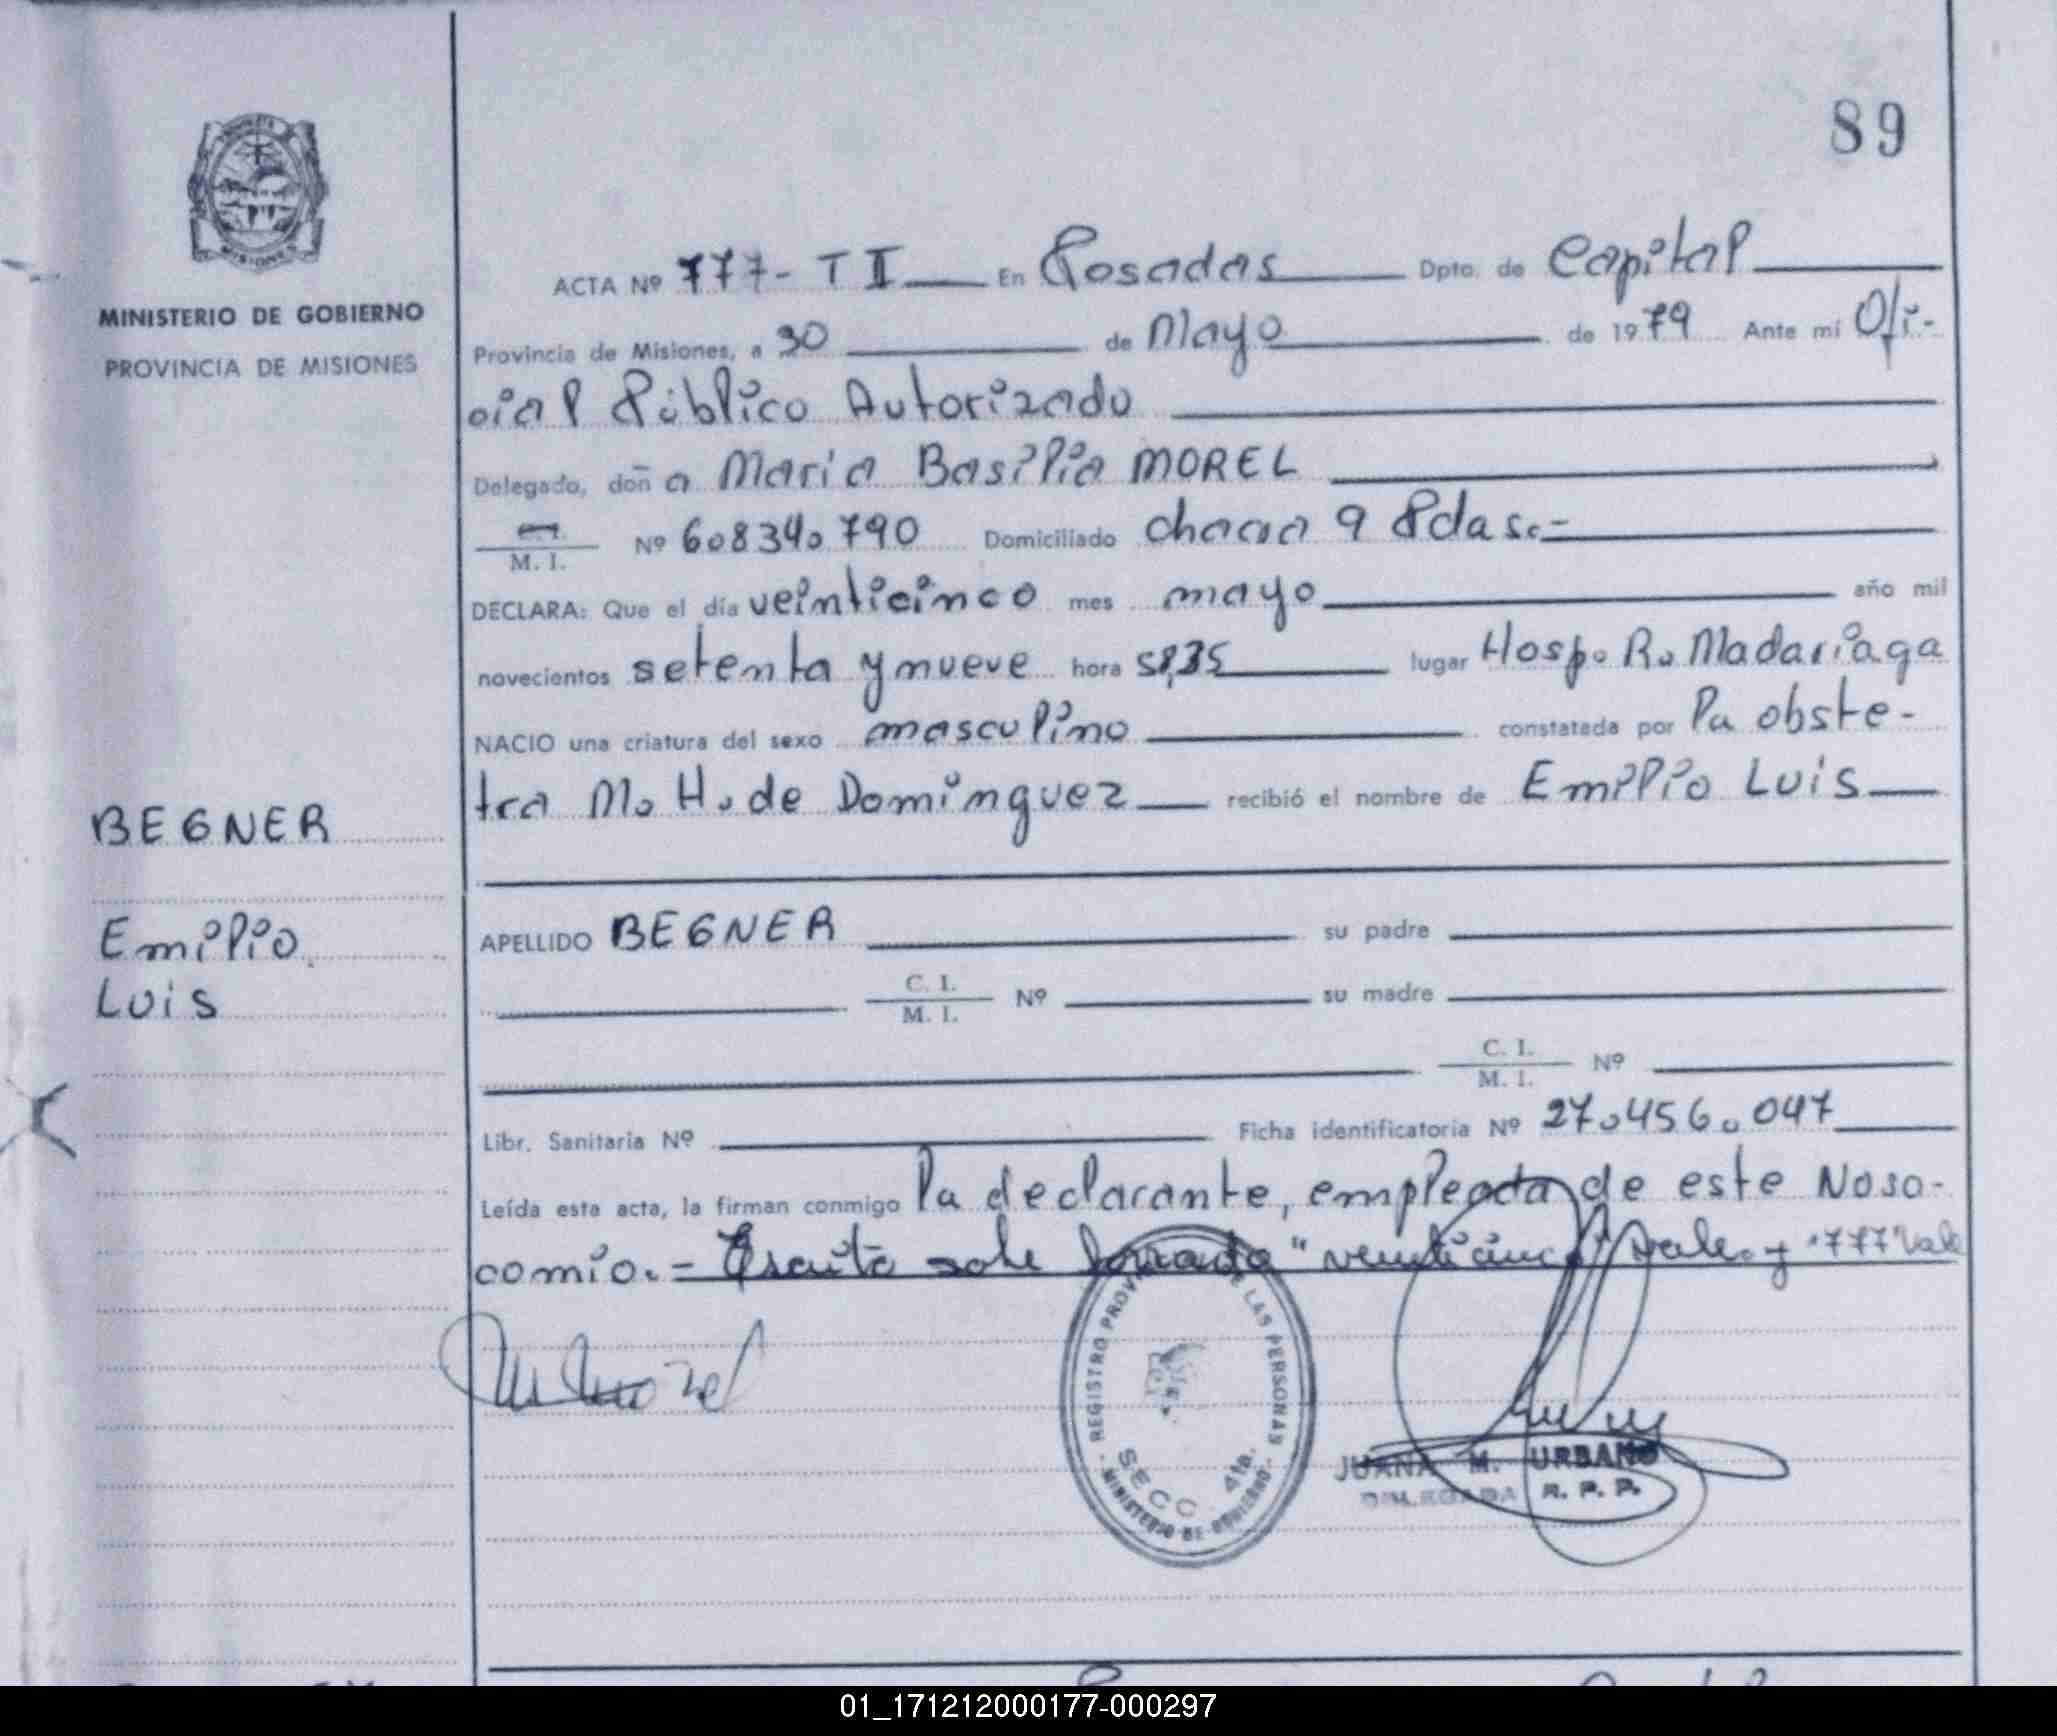 89
MINISTERIO DE GOBIERNO
PROVINCIA DE MISIONES
ACTA Nº 777- T II En Posadas Dpto. de Capital
Provincia de Misiones, a 30 de Mayo de 1979 Ante mí Ofi-
cial Público Autorizado
Delegado, doña Maria Basilia MOREL
M. I. Nº 6.834.790 Domiciliado chacra 9 Pdas.-
DECLARA: Que el día veinticinco mes mayo año mil
novecientos setenta y nueve hora lugar Hosp. R. Madariaga
NACIO una criatura del sexo masculino constatada por la obste-
tra M. H. de Dominguez recibió el nombre de Emilio Luis
BEGNER
Emilio
Luis
APELLIDO BEGNER su padre
C. I.
M. I. Nº su madre
C. I.
M. I. Nº
Libr. Sanitaria Nº Ficha identificatoria Nº 27.456.047
Leída esta acta, la firman conmigo la declarante, empleada de este Noso-
comio.- Escrito sobre borrado "veinticinco" Vale.- y "777" Vale
REGISTRO PROV LAS PERSONAS
SECC. 4ta.
MINISTERIO DE GOBIERNO
JUANA M. URBANO
DELEGADA R. P. P.
01_171212000177-000297